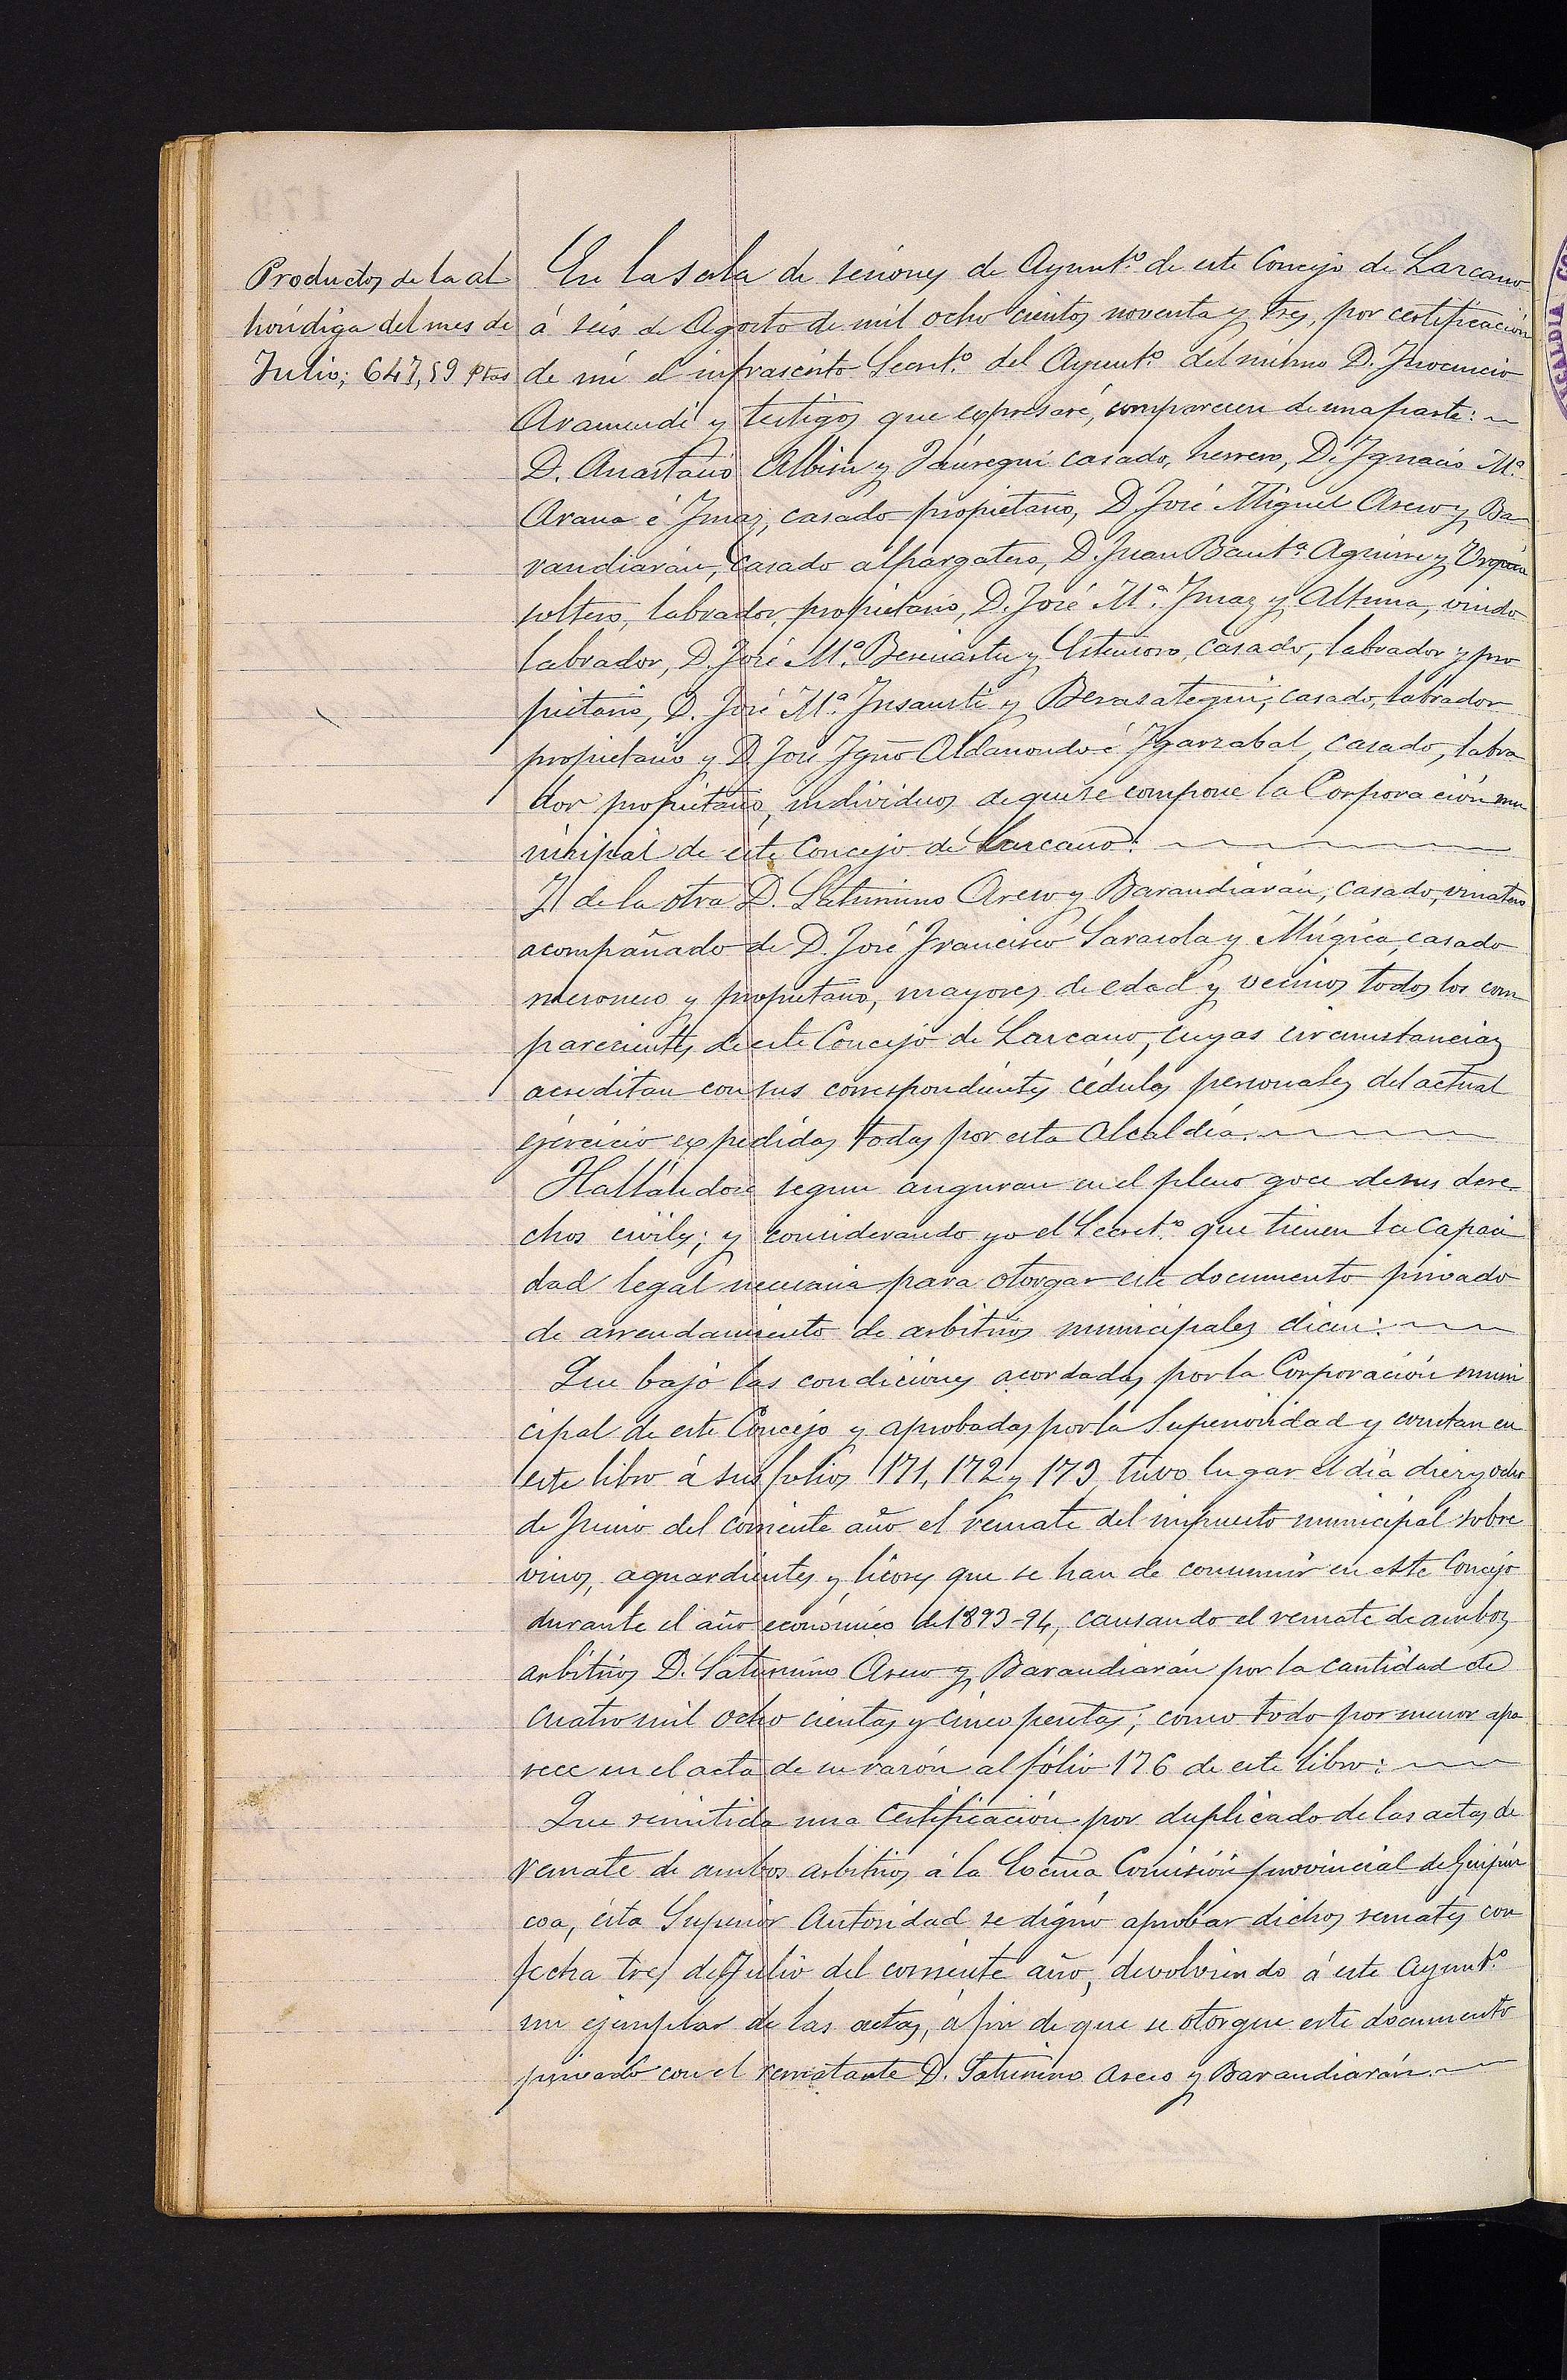 Productos de la al
hóndiga del mes de
Julio; 647,59 Ptas
En la sala de sesiones de Ayunt.º de este Concejo de Lazcano
á seis de Agosto de mil ocho cientos noventa y tres, por certificación
de mí el infrascrito Secret.º del Ayunt.º del mismo D. Inocencio
Aramendi y testigos que expresaré, comparecen de una parte:
D. Anastasio Albisu y Jáuregui casado, herrero, D. Ignacio M.ª
Arana é Imaz, casado propietario, D. José Miguel Aseso y Ba
randiarán, casado alpargatero, D. Juan Baut.ª Aguirre y
soltero, labrador, propietario, D. José M.ª Imaz y Altuna, viudo
labrador, D. José M.ª Beneiartu y casado, labrador y pro
pietario, D. José M.ª Insausti y Berasategui, casado, labrador
propietario y D. José Ygnº Aldanondo é Ygarzabal, casado, labra
dor propietario, individuos de que se compone la Corporación mu
nicipal de este Concejo de Lazcano:
Y de la otra D. Saturnino Aseso y Barandiarán, casado, vinatero
acompañado de D. José Francisco Sarasola y Múgica, casado
mesonero y propietario, mayores de edad y vecinos todos los com
parecientes de este Concejo de Lazcano, cuyas circunstancias
acreditan con sus correspondientes cédulas personales del actual
ejercicio expedidas todas por esta Alcaldía.
Hallándose segun aseguran en el pleno goce de sus dere
chos civiles; y considerando yo el Secret.º que tienen la capaci
dad legal necesaria para otorgar este documento privado
de arrendamiento de arbitrios municipales dicen:
Que bajo las condiciones acordadas por la Corporación muni
cipal de este Concejo y aprobadas por la Superioridad y constan en
este libro á sus folios 171, 172 y 173, tuvo lugar el día diez y ocho
de Junio del corriente año el remate del impuesto municipal sobre
vinos, aguardientes y licores que se han de consumir en este Concejo
durante el año económico de 1893-94, causando el remate de ambos
arbitrios D. Saturnino Aseso y Barandiarán por la cantidad de
cuatro mil ocho cientas y cinco pesetas; como todo por menor apa
rece en el acta de su razón al fólio 176 de este libro:
Que remitida una Certificación por duplicado de las actas de
remate de ambos arbitrios á la Excma Comisión provincial de Guipúz
coa, ésta Superior Autoridad se dignó aprobar dichos remates con
fecha tres de Julio del corriente año, devolviendo á este Ayunt.º
un ejemplar de las actas, á fin de que se otorgue este documento
privado con el rematante D. Saturnino Aseso y Barandiarán.